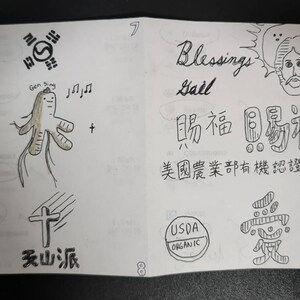 7
Gen Sing
天山派
8
Blessings
Gaël
賜福 賜福
美國農業部有機認證
USDA
ORGANIC
愛